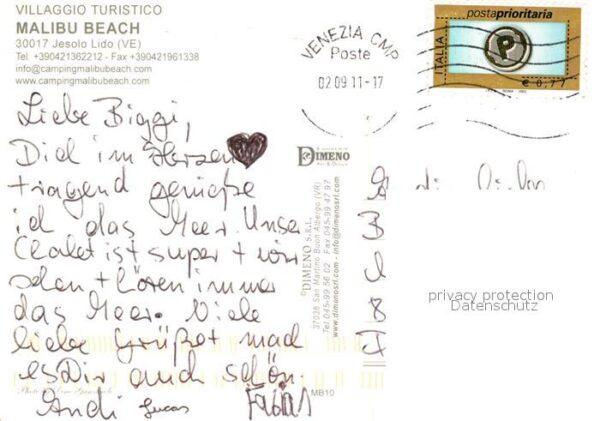 VILLAGGIO TURISTICO
MALIBU BEACH
30017 Jesolo Lido (VE)
Tel +390421362212 - Fax +390421961338
info@campingmalibubeach.com
www.campingmalibubeach.com
VENEZIA CMP
Poste
02.09.11-17
postaprioritaria
ITALIA
P
€ 0,77
Liebe Biggi,
Dich im Herzen
tragend genieße
ich das Meer. Unser
Chalet ist super + wir
sehen + hören immer
das Meer. Viele
liebe Grüße + mach
es Dir auch schön.
Andi Lucas Fabian
DIMENO
© DIMENO S.R.L.
37036 San Martino Buon Albergo (VR)
Tel 045-99 56 02 - Fax 045-99 47 97
www.dimenosrl.com - info@dimenosrl.com
MB10
privacy protection
Datenschutz